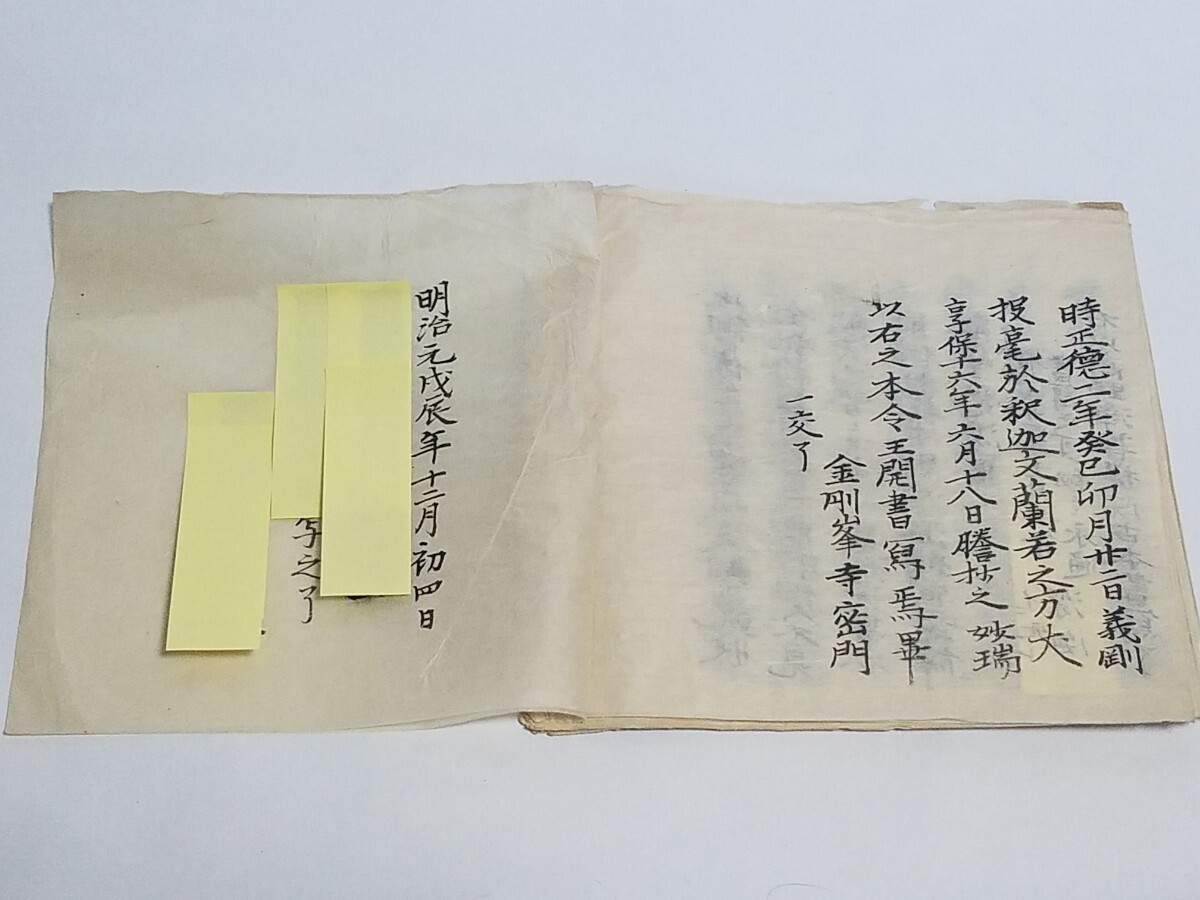 時正徳二年癸巳卯月廿二日義剛
投毫於釈迦文蘭若之方丈
享保十六年六月十八日謄挍之妙瑞
以右之本令王開書寫焉畢
金剛峯寺密門
一交了
明治元戊辰年十二月初四日
写之了